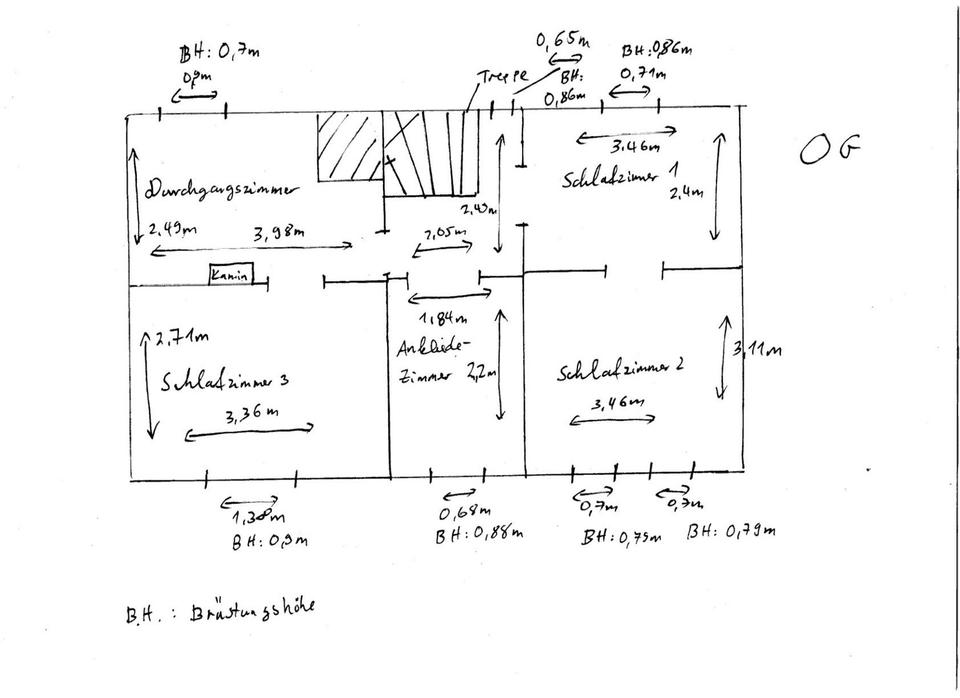 BH: 0,7m
0,9m
Treppe
0,65m
BH:
0,86m
BH: 0,86m
0,71m
OG
Durchgangszimmer
2,49m
3,98m
2,49m
2,05m
3,46m
Schlafzimmer 1
2,4m
Kamin
2,71m
Schlafzimmer 3
3,36m
1,84m
Ankleide-
Zimmer 2,2m
Schlafzimmer 2
3,46m
3,11m
1,38m
BH: 0,9m
0,68m
BH: 0,88m
0,7m
BH: 0,79m
0,7m
BH: 0,79m
B.H. : Brüstungshöhe